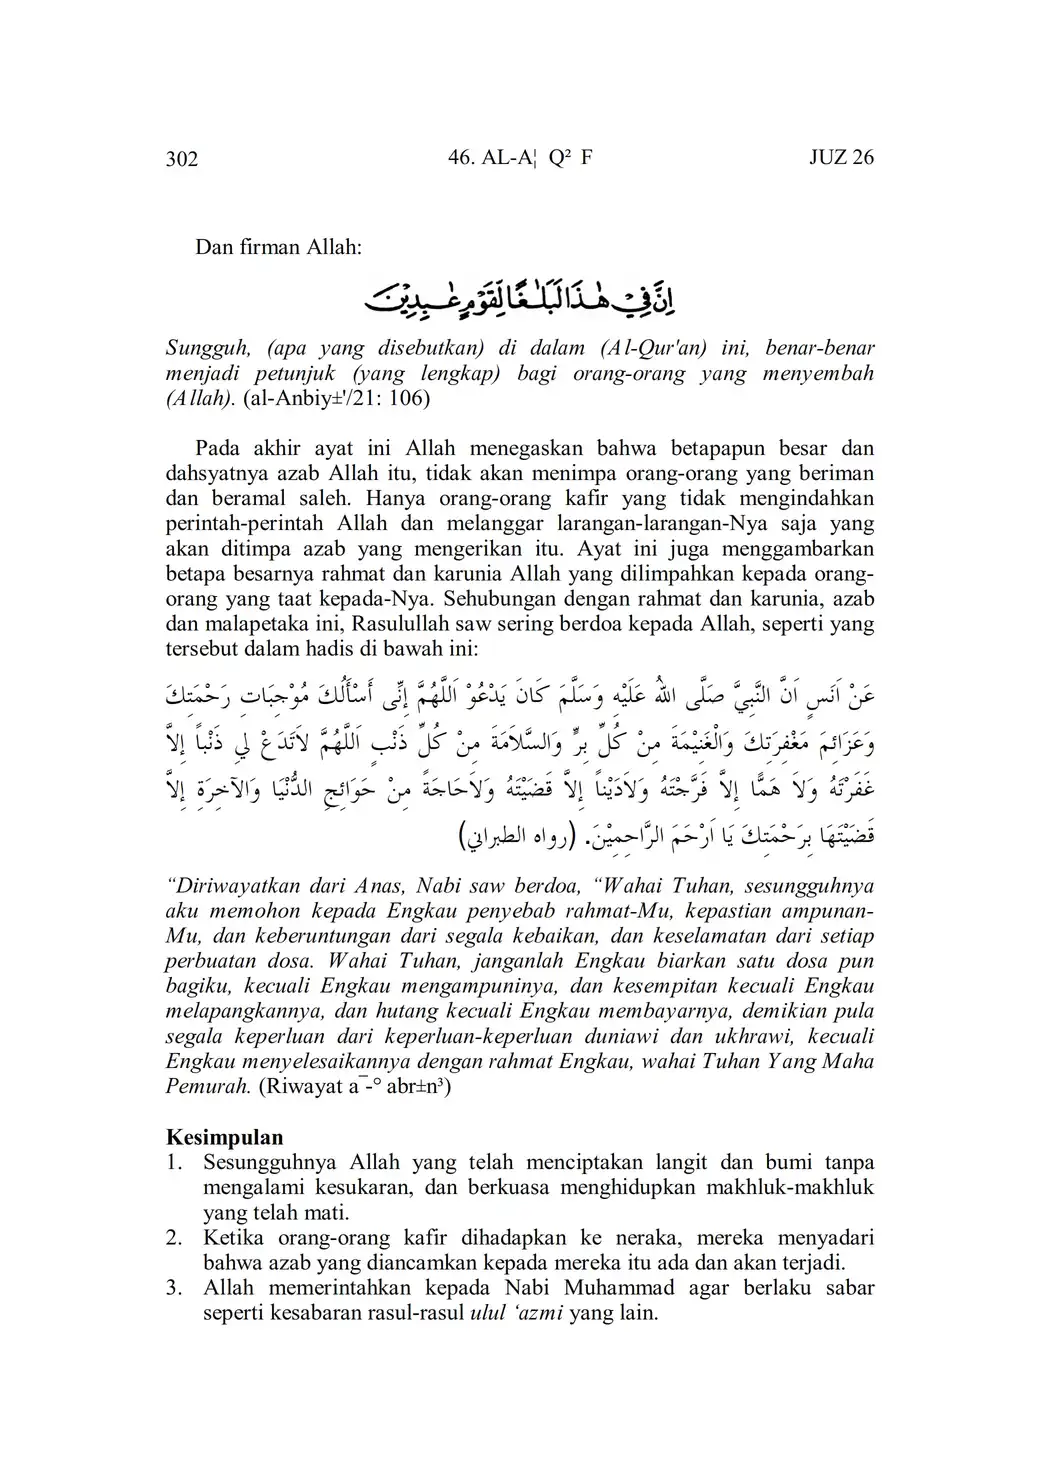 302 46. AL-A¦ Q² F JUZ 26
Dan firman Allah:
اِنَّ فِيْ هٰذَا لَبَلٰغًا لِّقَوْمٍ عٰبِدِيْنَ
Sungguh, (apa yang disebutkan) di dalam (Al-Qur'an) ini, benar-benar
menjadi petunjuk (yang lengkap) bagi orang-orang yang menyembah
(Allah). (al-Anbiy±'/21: 106)
Pada akhir ayat ini Allah menegaskan bahwa betapapun besar dan
dahsyatnya azab Allah itu, tidak akan menimpa orang-orang yang beriman
dan beramal saleh. Hanya orang-orang kafir yang tidak mengindahkan
perintah-perintah Allah dan melanggar larangan-larangan-Nya saja yang
akan ditimpa azab yang mengerikan itu. Ayat ini juga menggambarkan
betapa besarnya rahmat dan karunia Allah yang dilimpahkan kepada orang-
orang yang taat kepada-Nya. Sehubungan dengan rahmat dan karunia, azab
dan malapetaka ini, Rasulullah saw sering berdoa kepada Allah, seperti yang
tersebut dalam hadis di bawah ini:
عَنْ اَنَسٍ اَنَّ النَّبِيَّ صَلَّى اللهُ عَلَيْهِ وَسَلَّمَ كَانَ يَدْعُوْ اَللَّهُمَّ إِنِّى أَسْأَلُكَ مُوْجِبَاتِ رَحْمَتِكَ
وَعَزَائِمَ مَغْفِرَتِكَ وَالْغَنِيْمَةَ مِنْ كُلِّ بِرٍّ وَالسَّلاَمَةَ مِنْ كُلِّ ذَنْبٍ اَللَّهُمَّ لاَتَدَعْ لِي ذَنْباً إِلاَّ
غَفَرْتَهُ وَلاَ هَمًّا إِلاَّ فَرَّجْتَهُ وَلاَدَيْناً إِلاَّ قَضَيْتَهُ وَلاَحَاجَةً مِنْ حَوَائِجِ الدُّنْيَا وَالآخِرَةِ إِلاَّ
قَضَيْتَهَا بِرَحْمَتِكَ يَا اَرْحَمَ الرَّاحِمِيْنَ. (رواه الطبراني)
“Diriwayatkan dari Anas, Nabi saw berdoa, “Wahai Tuhan, sesungguhnya
aku memohon kepada Engkau penyebab rahmat-Mu, kepastian ampunan-
Mu, dan keberuntungan dari segala kebaikan, dan keselamatan dari setiap
perbuatan dosa. Wahai Tuhan, janganlah Engkau biarkan satu dosa pun
bagiku, kecuali Engkau mengampuninya, dan kesempitan kecuali Engkau
melapangkannya, dan hutang kecuali Engkau membayarnya, demikian pula
segala keperluan dari keperluan-keperluan duniawi dan ukhrawi, kecuali
Engkau menyelesaikannya dengan rahmat Engkau, wahai Tuhan Yang Maha
Pemurah. (Riwayat a¯-° abr±n³)
Kesimpulan
1. Sesungguhnya Allah yang telah menciptakan langit dan bumi tanpa
mengalami kesukaran, dan berkuasa menghidupkan makhluk-makhluk
yang telah mati.
2. Ketika orang-orang kafir dihadapkan ke neraka, mereka menyadari
bahwa azab yang diancamkan kepada mereka itu ada dan akan terjadi.
3. Allah memerintahkan kepada Nabi Muhammad agar berlaku sabar
seperti kesabaran rasul-rasul ulul ‘azmi yang lain.